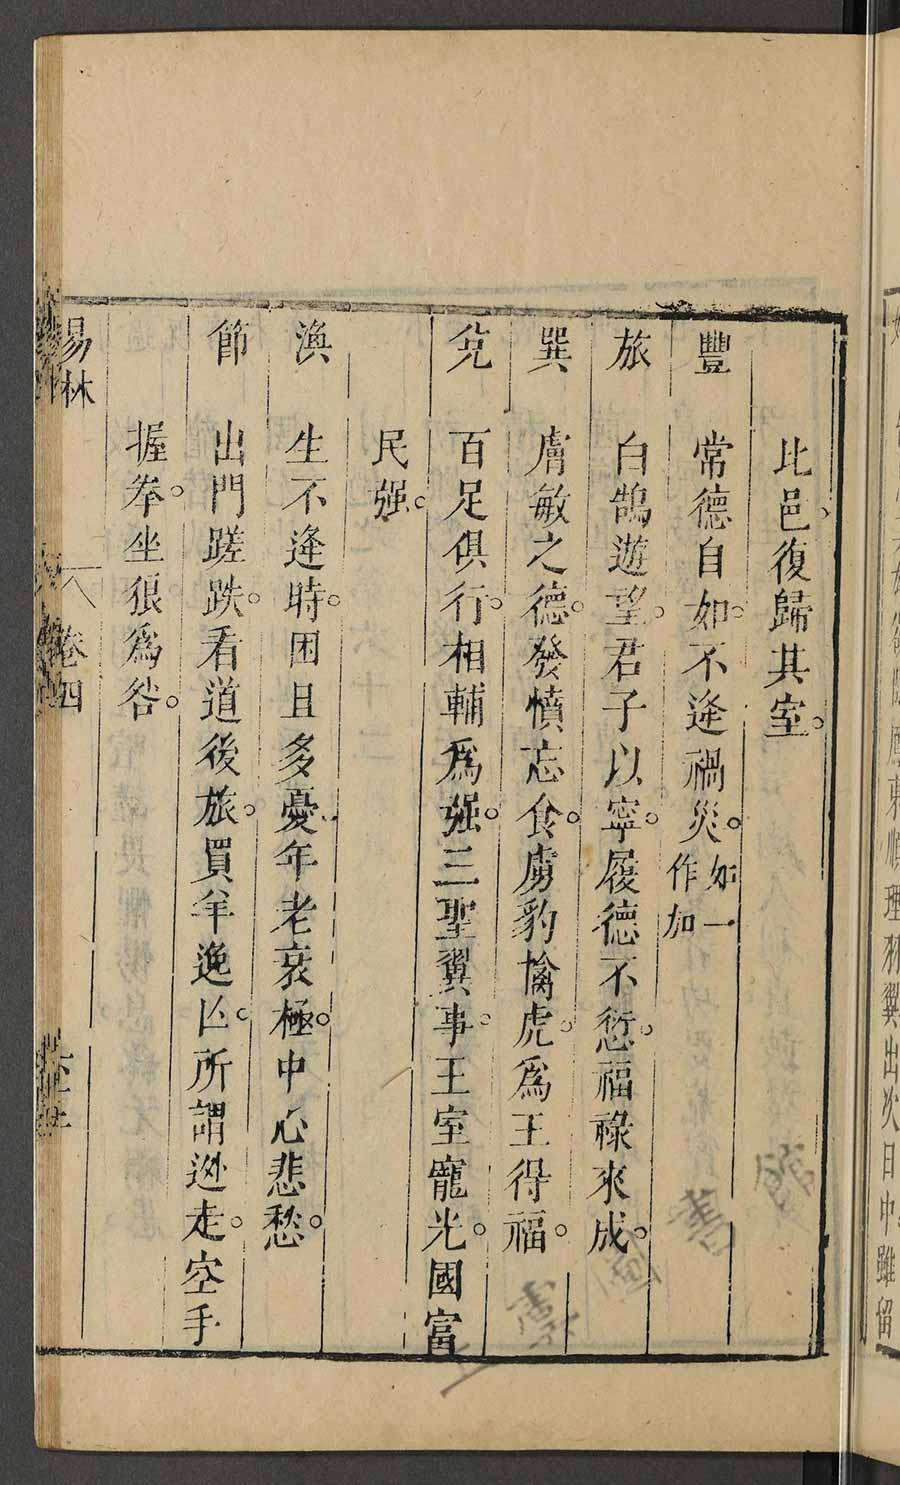 比邑復歸其室。
豐　常德自如。不逢禍災。如一作加
旅　白鵠遊望。君子以寧。履德不愆。福祿來成。
巽　膚敏之德。發憤忘食。虜豹擒虎。爲王得福。
兊　百足俱行。相輔爲强。三聖翼事。王室寵光。國富
民强。
渙　生不逢時。困且多憂。年老衰極。中心悲愁。
節　出門蹉跌。看道後旅。買羊逸亾。所謂逃走。空手
握拳。坐狠爲咎。
易林　卷四